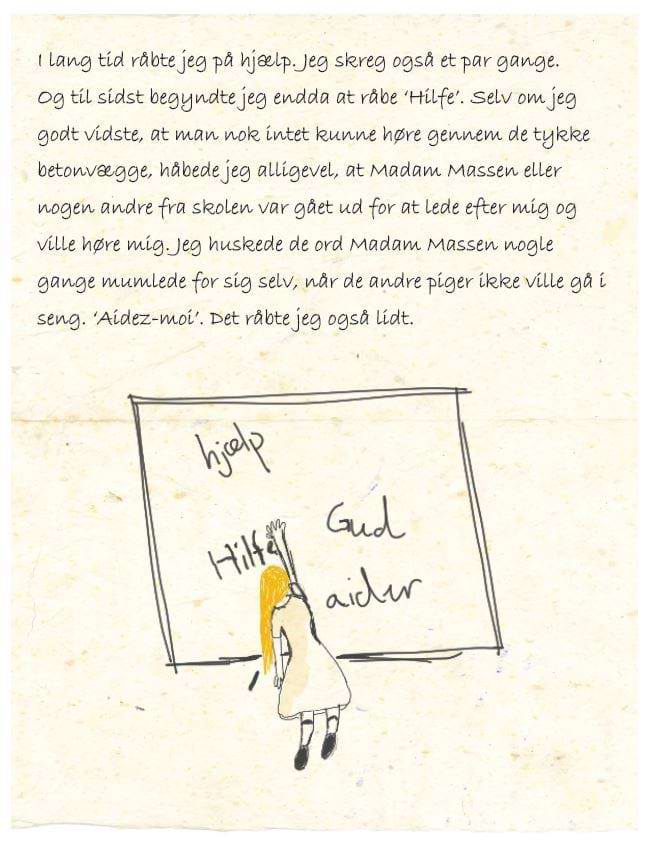 I lang tid råbte jeg på hjælp. Jeg skreg også et par gange.
Og til sidst begyndte jeg endda at råbe ‘Hilfe’. Selv om jeg
godt vidste, at man nok intet kunne høre gennem de tykke
betonvægge, håbede jeg alligevel, at Madam Massen eller
nogen andre fra skolen var gået ud for at lede efter mig og
ville høre mig. Jeg huskede de ord Madam Massen nogle
gange mumlede for sig selv, når de andre piger ikke ville gå i
seng. ‘Aidez-moi’. Det råbte jeg også lidt.
hjælp
Gud
Hilfe
aider